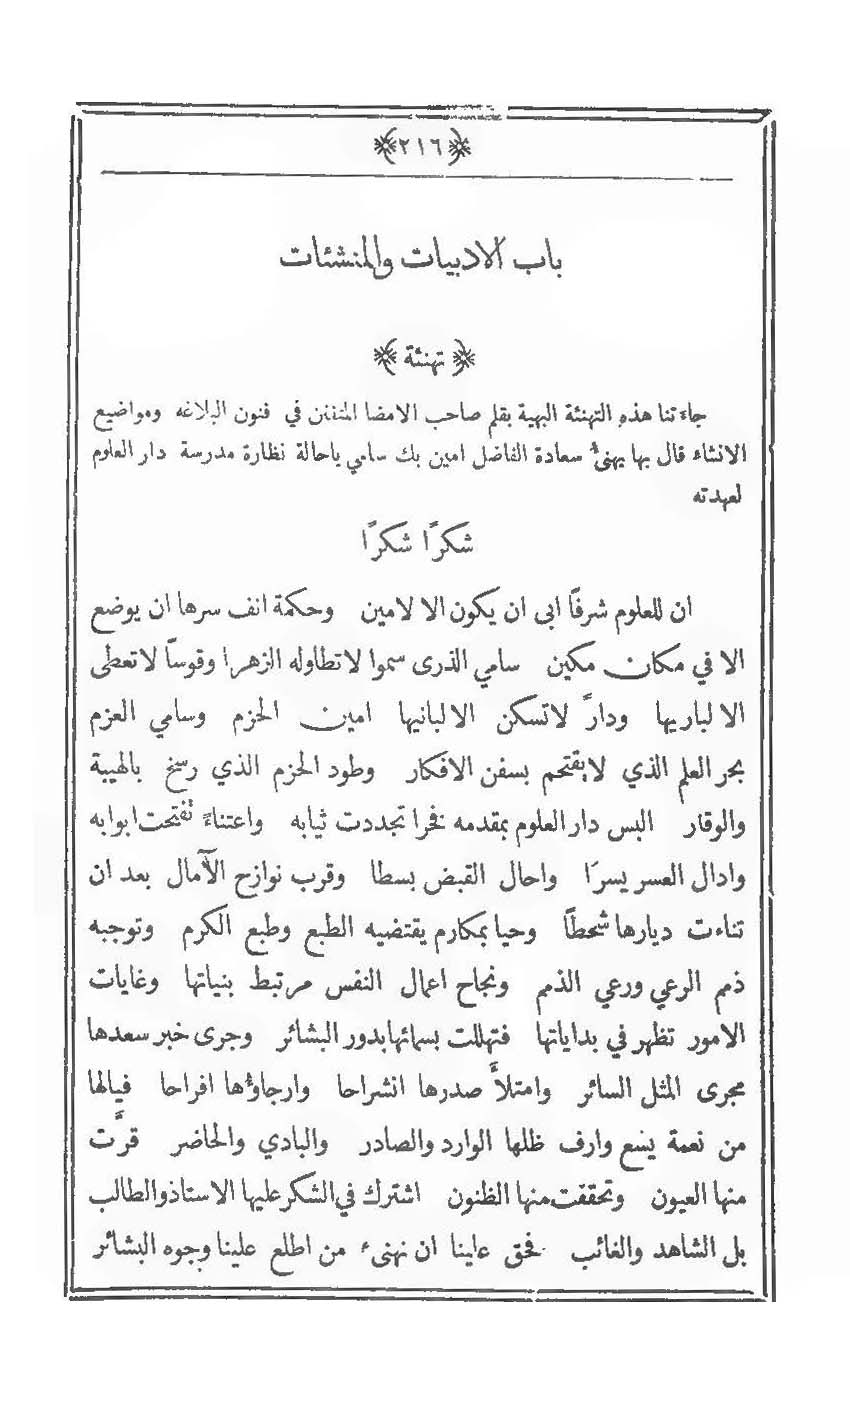 ﴿٢١٦﴾
باب الادبيات والمنشئات
﴿تهنئة﴾
جاءتنا هذه التهنئة البهية بقلم صاحب الامضا المتفنن في فنون البلاغه ومواضيع
الانشاء قال بها يهنئ سعادة الفاضل امين بك سامي باحالة نظارة مدرسة دار العلوم
لعهدته
شكرًا شكرًا
ان للعلوم شرفًا ابى ان يكون الا لامين وحكمة انف سرها ان يوضع
الا في مكان مكين سامي الذرى سموا لا تطاوله الزهرا وقوسًا لا تعطى
الا لباريها ودارً لا تسكن الا لبانيها امين الحزم وسامي العزم
بحر العلم الذي لا يقتحم بسفن الافكار وطود الحزم الذي رسخ بالهيبة
والوقار البس دار العلوم بمقدمه فخرا تجددت ثيابه واعتناءً تفتحت ابوابه
وادال العسر يسرًا واحال القبض بسطا وقرب نوازح الآمال بعد ان
تناءت ديارها شحطًا وحيا بمكارم يقتضيه الطبع وطبع الكرم وتوجبه
ذمم الرعي ورعي الذمم ونجاح اعمال النفس مرتبط بنياتها وغايات
الامور تظهر في بداياتها فتهللت بسمائها بدور البشائر وجرى خبر سعدها
مجرى المثل السائر وامتلأَ صدرها انشراحا وارجاؤها افراحا فيالها
من نعمة يسع وارف ظلها الوارد والصادر والبادي والحاضر قرَّت
منها العيون وتحققت منها الظنون اشترك في الشكر عليها الاستاذ والطالب
بل الشاهد والغائب فحق علينا ان نهنىء من اطلع علينا وجوه البشائر